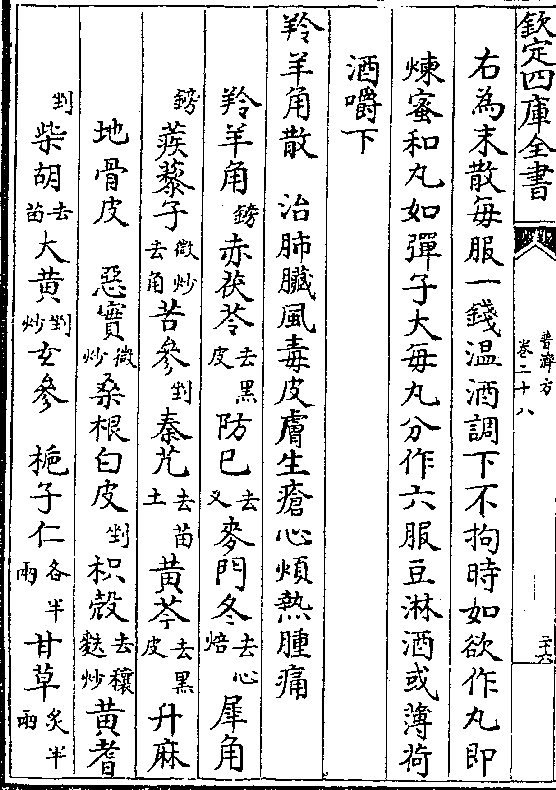 欽定四庫全書
普濟方
卷二十八
二六
右為末散每服一錢温酒調下不拘時如欲作丸即
煉蜜和丸如彈子大每丸分作六服豆淋酒或薄荷
酒嚼下
羚羊角散　治肺臟風毒皮膚生瘡心煩熱腫痛
羚羊角鎊赤茯苓去黑皮防巳去义麥門冬去心焙犀角
鎊蒺藜子微炒去角苦參剉秦艽去苗土黃芩去黑皮升麻
地骨皮　惡實微炒桑根白皮剉枳殻去穰麩炒黃耆
剉柴胡去苗大黃剉炒玄參　梔子仁各半兩甘草炙半兩